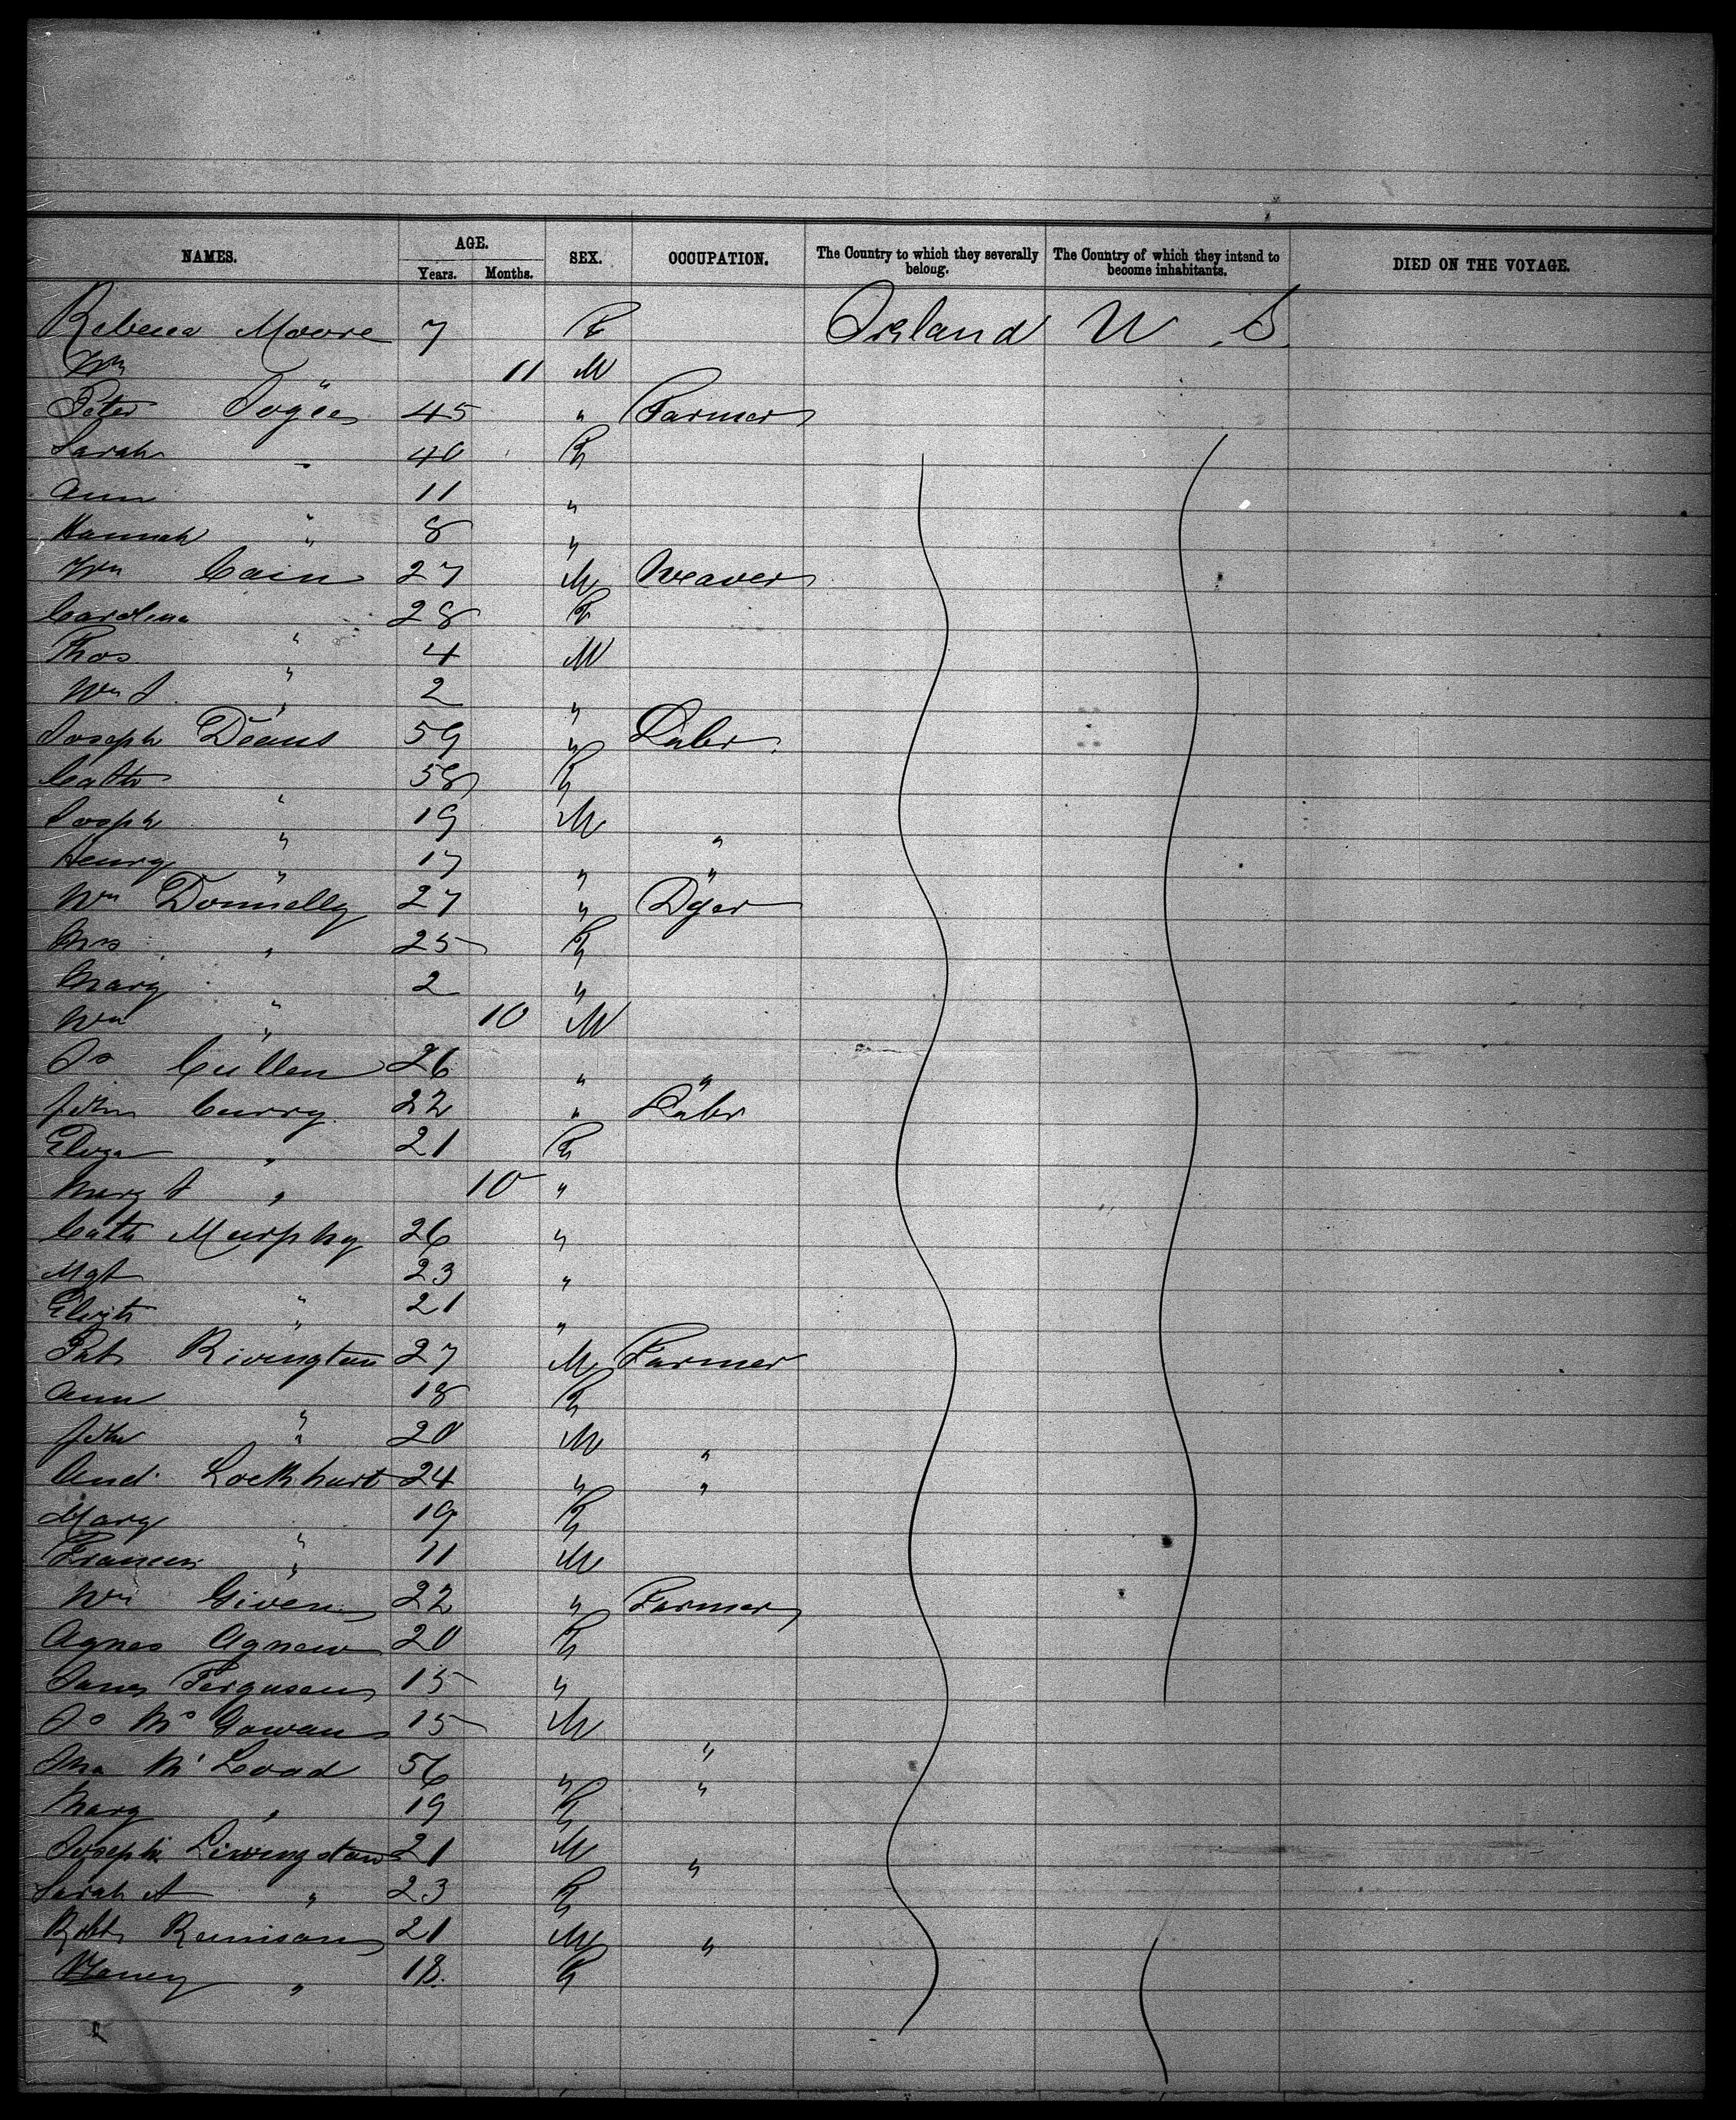 NAMES. AGE. SEX. OCCUPATION. The Country to which they severally belong. The Country of which they intend to become inhabitants. DIED ON THE VOYAGE.
Years. Months.
Rebecca Moore 7 F Ireland U. S.
Wm " 11 M
Peter 45 " Farmer
Sarah " 40 F
Ann " 11 "
Hannah " 8 "
Wm Cain 27 M Weaver
Carolina " 28 F
Thos " 4 M
Wm J. " 2 "
Joseph Deans 59 " Labr.
Cath " 58 F
Joseph " 19 M "
Henry " 17 " "
Wm Donnelly 27 " Dyer
Mrs " 25 F
Mary " 2 "
Wm " 10 M
Jo Cullen 26 " "
John Curry 22 " Labr
Eliza " 21 F
Mary J " 10 "
Cath Murphy 26 "
Mgt " 23 "
Elizth " 21 "
Pat Rivington 27 M Farmer
Ann " 18 F
John " 20 M "
And. Lockhart 24 " "
Mary " 19 F
Francis " 11 M
Wm Given 22 " Farmer
Agnes Agnew 20 F
Ferguson 15 "
Jo McGowan 15 M "
M' Load 56 " "
Mary " 19 F
Joseph Livingston 21 M "
Sarah A " 23 F
Robt 21 M "
" 18. F